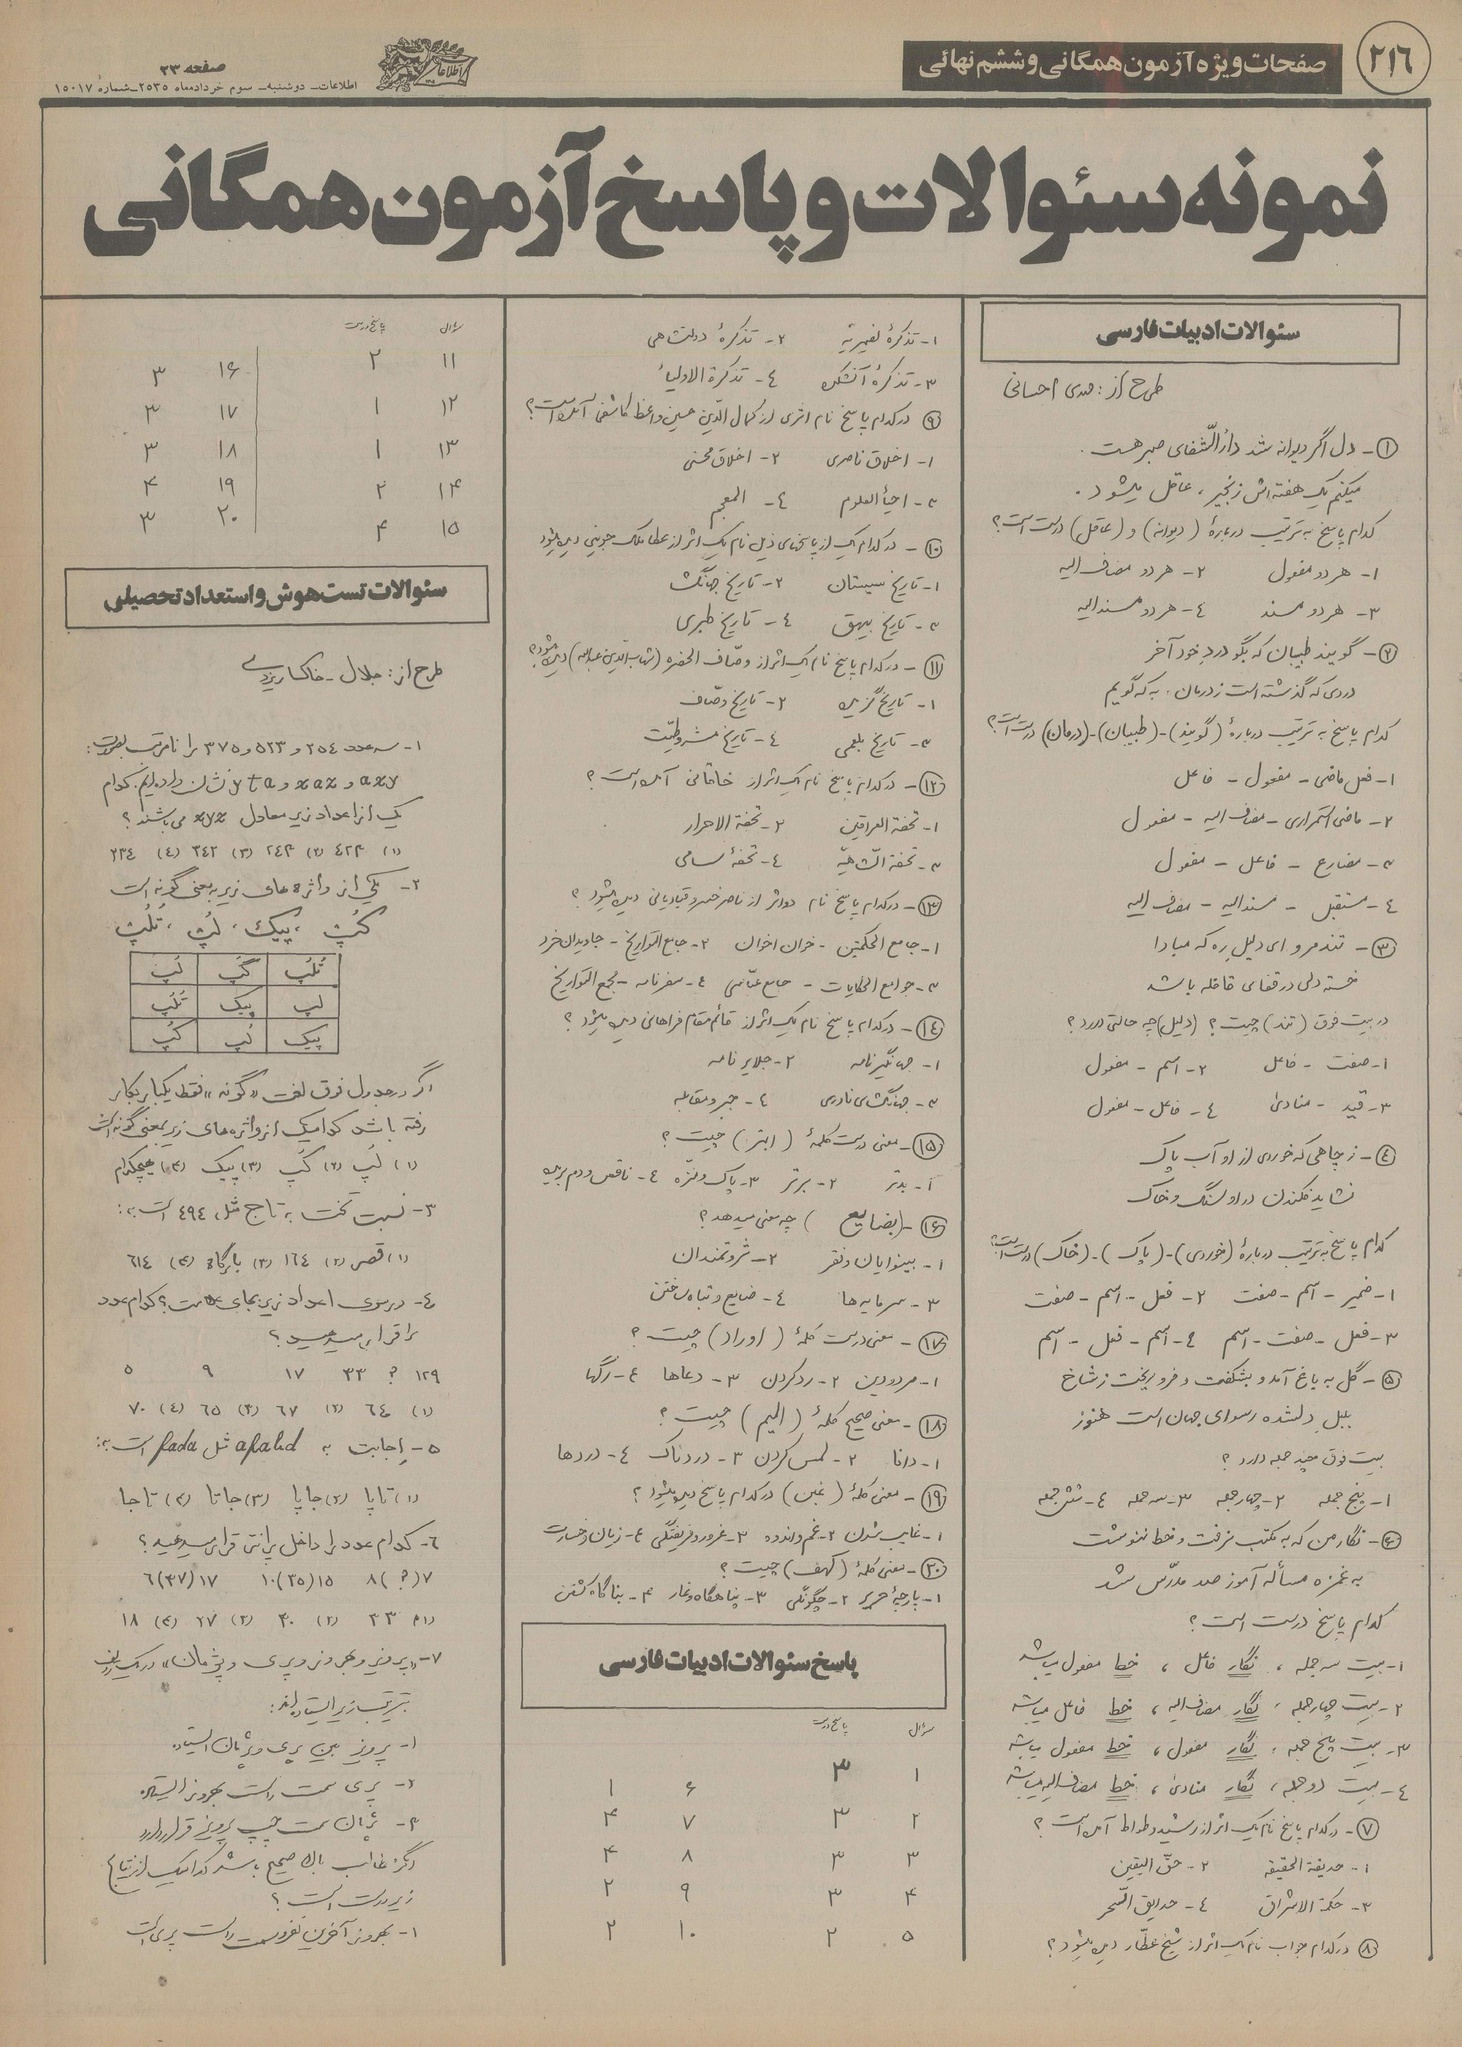 ۲۱۶
صفحات ویژه آزمون همگانی و ششم نهائی
صفحه ۲۳
اطلاعات ـ دوشنبه ـ سوم خردادماه ۲۵۳۵ ـ شماره ۱۵۰۱۷
نمونه سئوالات و پاسخ آزمون همگانی
سئوالات ادبیات فارسی
طرح از : مهدی احسانی
۱ـ دل اگر دیوانه شد دارالشّفای صبر هست .
میکنم یک هفته اش زنجیر ، عاقل میشود .
کدام پاسخ به ترتیب دربارهٔ ( دیوانه ) و ( عاقل ) درست است ؟
۱ـ هر دو مفعول ۲ـ هر دو مضاف الیه
۳ـ هر دو مسند ٤ـ هر دو مسندالیه
۲ـ گویند طبیبان که بگو درد خود آخر
دردی که گذشته است ز درمان ، به که گویم
کدام پاسخ به ترتیب دربارهٔ ( گویند )ـ( طبیبان )ـ( درمان ) درست است ؟
۱ـ فعل ماضی ـ مفعول ـ فاعل
۲ـ ماضی استمراری ـ مضاف الیه ـ مفعول
۳ـ مضارع ـ فاعل ـ مفعول
٤ـ مستقبل ـ مسندالیه ـ مضاف الیه
۳ـ تند مرو ای دلیل ره که مبادا
خسته دلی در قفای قافله باشد
در بیت فوق ( تند ) چیست ؟ ( دلیل ) چه حالتی دارد ؟
۱ـ صفت ـ فاعل ۲ـ اسم ـ مفعول
۳ـ قید ـ منادیٰ ٤ـ فاعل ـ مفعول
٤ـ ز چاهی که خوردی از او آب پاک
نشاید فکندن در او سنگ و خاک
کدام پاسخ به ترتیب دربارهٔ ( خوردی )ـ( پاک )ـ( خاک ) درست است ؟
۱ـ ضمیر ـ اسم ـ صفت ۲ـ فعل ـ اسم ـ صفت
۳ـ فعل ـ صفت ـ اسم ٤ـ اسم ـ فعل ـ اسم
۵ـ گل به باغ آمد و بشکفت و فرو ریخت ز شاخ
بلبل دلشده رسوای جهان است هنوز
بیت فوق چند جمله دارد ؟
۱ـ پنج جمله ۲ـ چهار جمله ۳ـ سه جمله ٤ـ شش جمله
۶ـ نگار من که به مکتب نرفت و خط ننوشت
به غمزه مسأله آموز صد مدرّس شد
کدام پاسخ درست است ؟
۱ـ بیت سه جمله ، نگار فاعل ، خط مفعول میباشد
۲ـ بیت چهار جمله ، نگار مضاف الیه ، خط فاعل میباشد
۳ـ بیت پنج جمله ، نگار مفعول ، خط مفعول میباشد
٤ـ بیت دو جمله ، نگار منادیٰ ، خط مضاف الیه میباشد
۷ـ در کدام پاسخ نام یک اثر از رشید وطواط آمده است ؟
۱ـ حدیقة الحقیقه ۲ـ حقّ الیقین
۳ـ حکمة الاشراق ٤ـ حدایق السّحر
۸ در کدام جواب نام یک اثر از شیخ عطّار دیده میشود ؟
۱ـ تذکرهٔ نصیریه ۲ـ تذکرهٔ دولتشاهی
۳ـ تذکرهٔ آتشکده ٤ـ تذکرة الاولیاء
۹ در کدام پاسخ نام اثری از کمال الدّین حسین واعظ کاشفی آمده است ؟
۱ـ اخلاق ناصری ۲ـ اخلاق محسنی
۳ـ احیاءالعلوم ٤ـ المعجم
۱۰ـ در کدام یک از پاسخهای ذیل نام یک اثر از عطاملک جوینی دیده میشود
۱ـ تاریخ سیستان ۲ـ تاریخ جهانگشا
۳ـ تاریخ بیهق ٤ـ تاریخ طبری
۱۱ـ در کدام پاسخ نام یک اثر از وصّاف الحضره ( شهاب الدّین عبدالله ) دیده میشود ؟
۱ـ تاریخ گزیده ۲ـ تاریخ وصّاف
۳ـ تاریخ بلعمی ٤ـ تاریخ مشروطیّت
۱۲ـ در کدام پاسخ نام یک اثر از خاقانی آمده است ؟
۱ـ تحفة العراقین ۲ـ تحفة الاحرار
۳ـ تحفة الشّاهیّه ٤ـ تحفهٔ سامی
۱۳ـ در کدام پاسخ نام دو اثر از ناصر خسرو قبادیانی دیده میشود ؟
۱ـ جامع الحکمتین ـ خوان اخوان ۲ـ جامع التواریخ ـ جاویدان خرد
۳ـ جوامع الحکایات ـ جامع عبّاسی ٤ـ سفرنامه ـ مجمع التواریخ
۱٤ـ در کدام پاسخ نام یک اثر از قائم مقام فراهانی دیده میشود ؟
۱ـ جهانگیرنامه ۲ـ جلایرنامه
۳ـ جهانگشای نادری ٤ـ جبر و مقابله
۱۵ـ معنی درست کلمهٔ ( ابتر ) چیست ؟
۱ـ بدتر ۲ـ برتر ۳ـ پاک و منزّه ٤ـ ناقص و دم بریده
۱۶ـ ( بضایع ) چه معنی میدهد ؟
۱ـ بینوایان و فقر ۲ـ ثروتمندان
۳ـ سرمایه ها ٤ـ ضایع و تباه ساختن
۱۷ـ معنی درست کلمهٔ ( اوراد ) چیست ؟
۱ـ مردودین ۲ـ رد کردن ۳ـ دعاها ٤ـ رگها
۱۸ـ معنی صحیح کلمهٔ ( الیم ) چیست ؟
۱ـ دانا ۲ـ لمس کردن ۳ـ دردناک ٤ـ دردها
۱۹ـ معنی کلمهٔ ( غبن ) در کدام پاسخ دیده میشود ؟
۱ـ غایب شدن ۲ـ غم و اندوه ۳ـ غرور و فریفتگی ٤ـ زیان و خسارت
۲۰ـ معنی کلمهٔ ( کهف ) چیست ؟
۱ـ پارچهٔ حریر ۲ـ چگونگی ۳ـ پناهگاه و غار ۴ـ بناگاه کشتن
پاسخ سئوالات ادبیات فارسی
سئوال پاسخ درست
۱ ۳ ۶ ۱
۲ ۳ ۷ ۴
۳ ۳ ۸ ۴
۴ ۳ ۹ ۲
۵ ۲ ۱۰ ۲
سئوال پاسخ درست
۱۱ ۲ ۱۶ ۳
۱۲ ۱ ۱۷ ۳
۱۳ ۱ ۱۸ ۳
۱۴ ۲ ۱۹ ۴
۱۵ ۴ ۲۰ ۳
سئوالات تست هوش و استعداد تحصیلی
طرح از : جلال ـ خاکسار یزدی
۱ـ سه عدد ۲۵٤ و ۵۲۳ و ۳۷۵ را نامرتب بصورت :
axy و xaz و yta نشان داده ایم . کدام
یک از اعداد زیر معادل xyz می باشند ؟
(۱) ۴۲۳ (۲) ۲٤۳ (۳) ۳٤۲ (٤) ۲۳٤
۲ـ یکی از واژه های زیر به معنی گونه است
کُپ ، پیک ، لُپ ، تُلُپ
تُلُپ کُپ لُپ
لپ پیک تُلُپ
پیک لُپ کُپ
اگر در جدول فوق لغت «گونه» فقط یکبار بکار
رفته باشد کدامیک از واژه های زیر بمعنی گونه است
(۱) لُپ (۲) کُپ (۳) پیک (۴) هیچکدام
۳ـ نسبت تخت به تاج مثل ٤۹٤ است به :
(۱) قصر (۲) ۱٦٤ (۳) بارگاه (۴) ٦۱٤
٤ـ در سری اعداد زیر بجای علامت ؟ کدام عدد
را قرار میدهید ؟
۵ ۹ ۱۷ ۳۳ ? ۱۲۹
(۱) ٦٤ (۲) ٦۷ (۳) ٦۵ (٤) ۷۰
۵ـ اجابت به afabd مثل fada است به :
(۱) تاپا (۲) جاپا (۳) جاتا (۴) تاجا
۶ـ کدام عدد را داخل پرانتز قرار میدهید ؟
۶(۴۷)۱۷ ۱۰(۳۵)۱۵ ۸(؟)۷
(۱) ۳۳ (۲) ۴۰ (۳) ۲۷ (۴) ۱۸
۷ـ «پرویز و بهروز و پری و پژمان» در یک ردیف
بترتیب زیر ایستاده اند :
۱ـ پرویز بین پری و پژمان ایستاده
۲ـ پری سمت راست بهروز ایستاده
۳ـ پژمان سمت چپ پرویز قرار دارد
اگر مطالب بالا صحیح باشد کدامیک از نتایج
زیر درست است ؟
۱ـ بهروز آخرین نفر سمت راست پری است